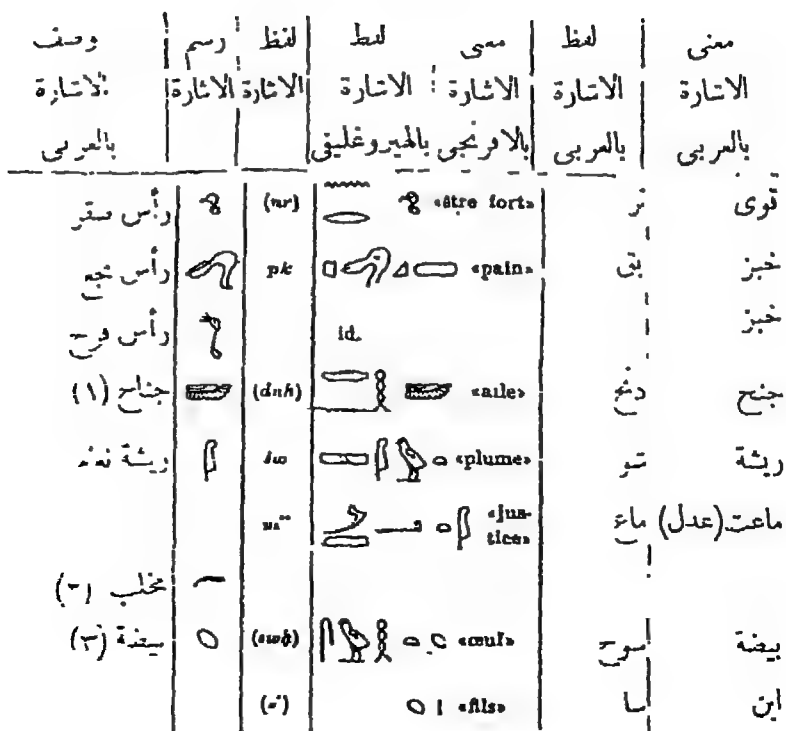 معنى الاشارة بالعربى | لفظ الاشارة بالعربى | معنى الاشارة بالافرنجى | لفظ الاشارة بالهيروغليفى | لفظ الاشارة | رسم الاشارة | وصف الاشارة بالعربى
قوى نر «être fort» (nr) رأس
خبز بق «pain» pk رأس
خبز id. رأس فرخ
جنح دنح «aile» (dnḥ) جناح (١)
ريشة شو «plume» šw ريشة
ماعت (عدل) ماع «justice»
مخلب (٢)
بيضة سوح «œuf» (swḥ) بيضة (٣)
ابن سا «fils»